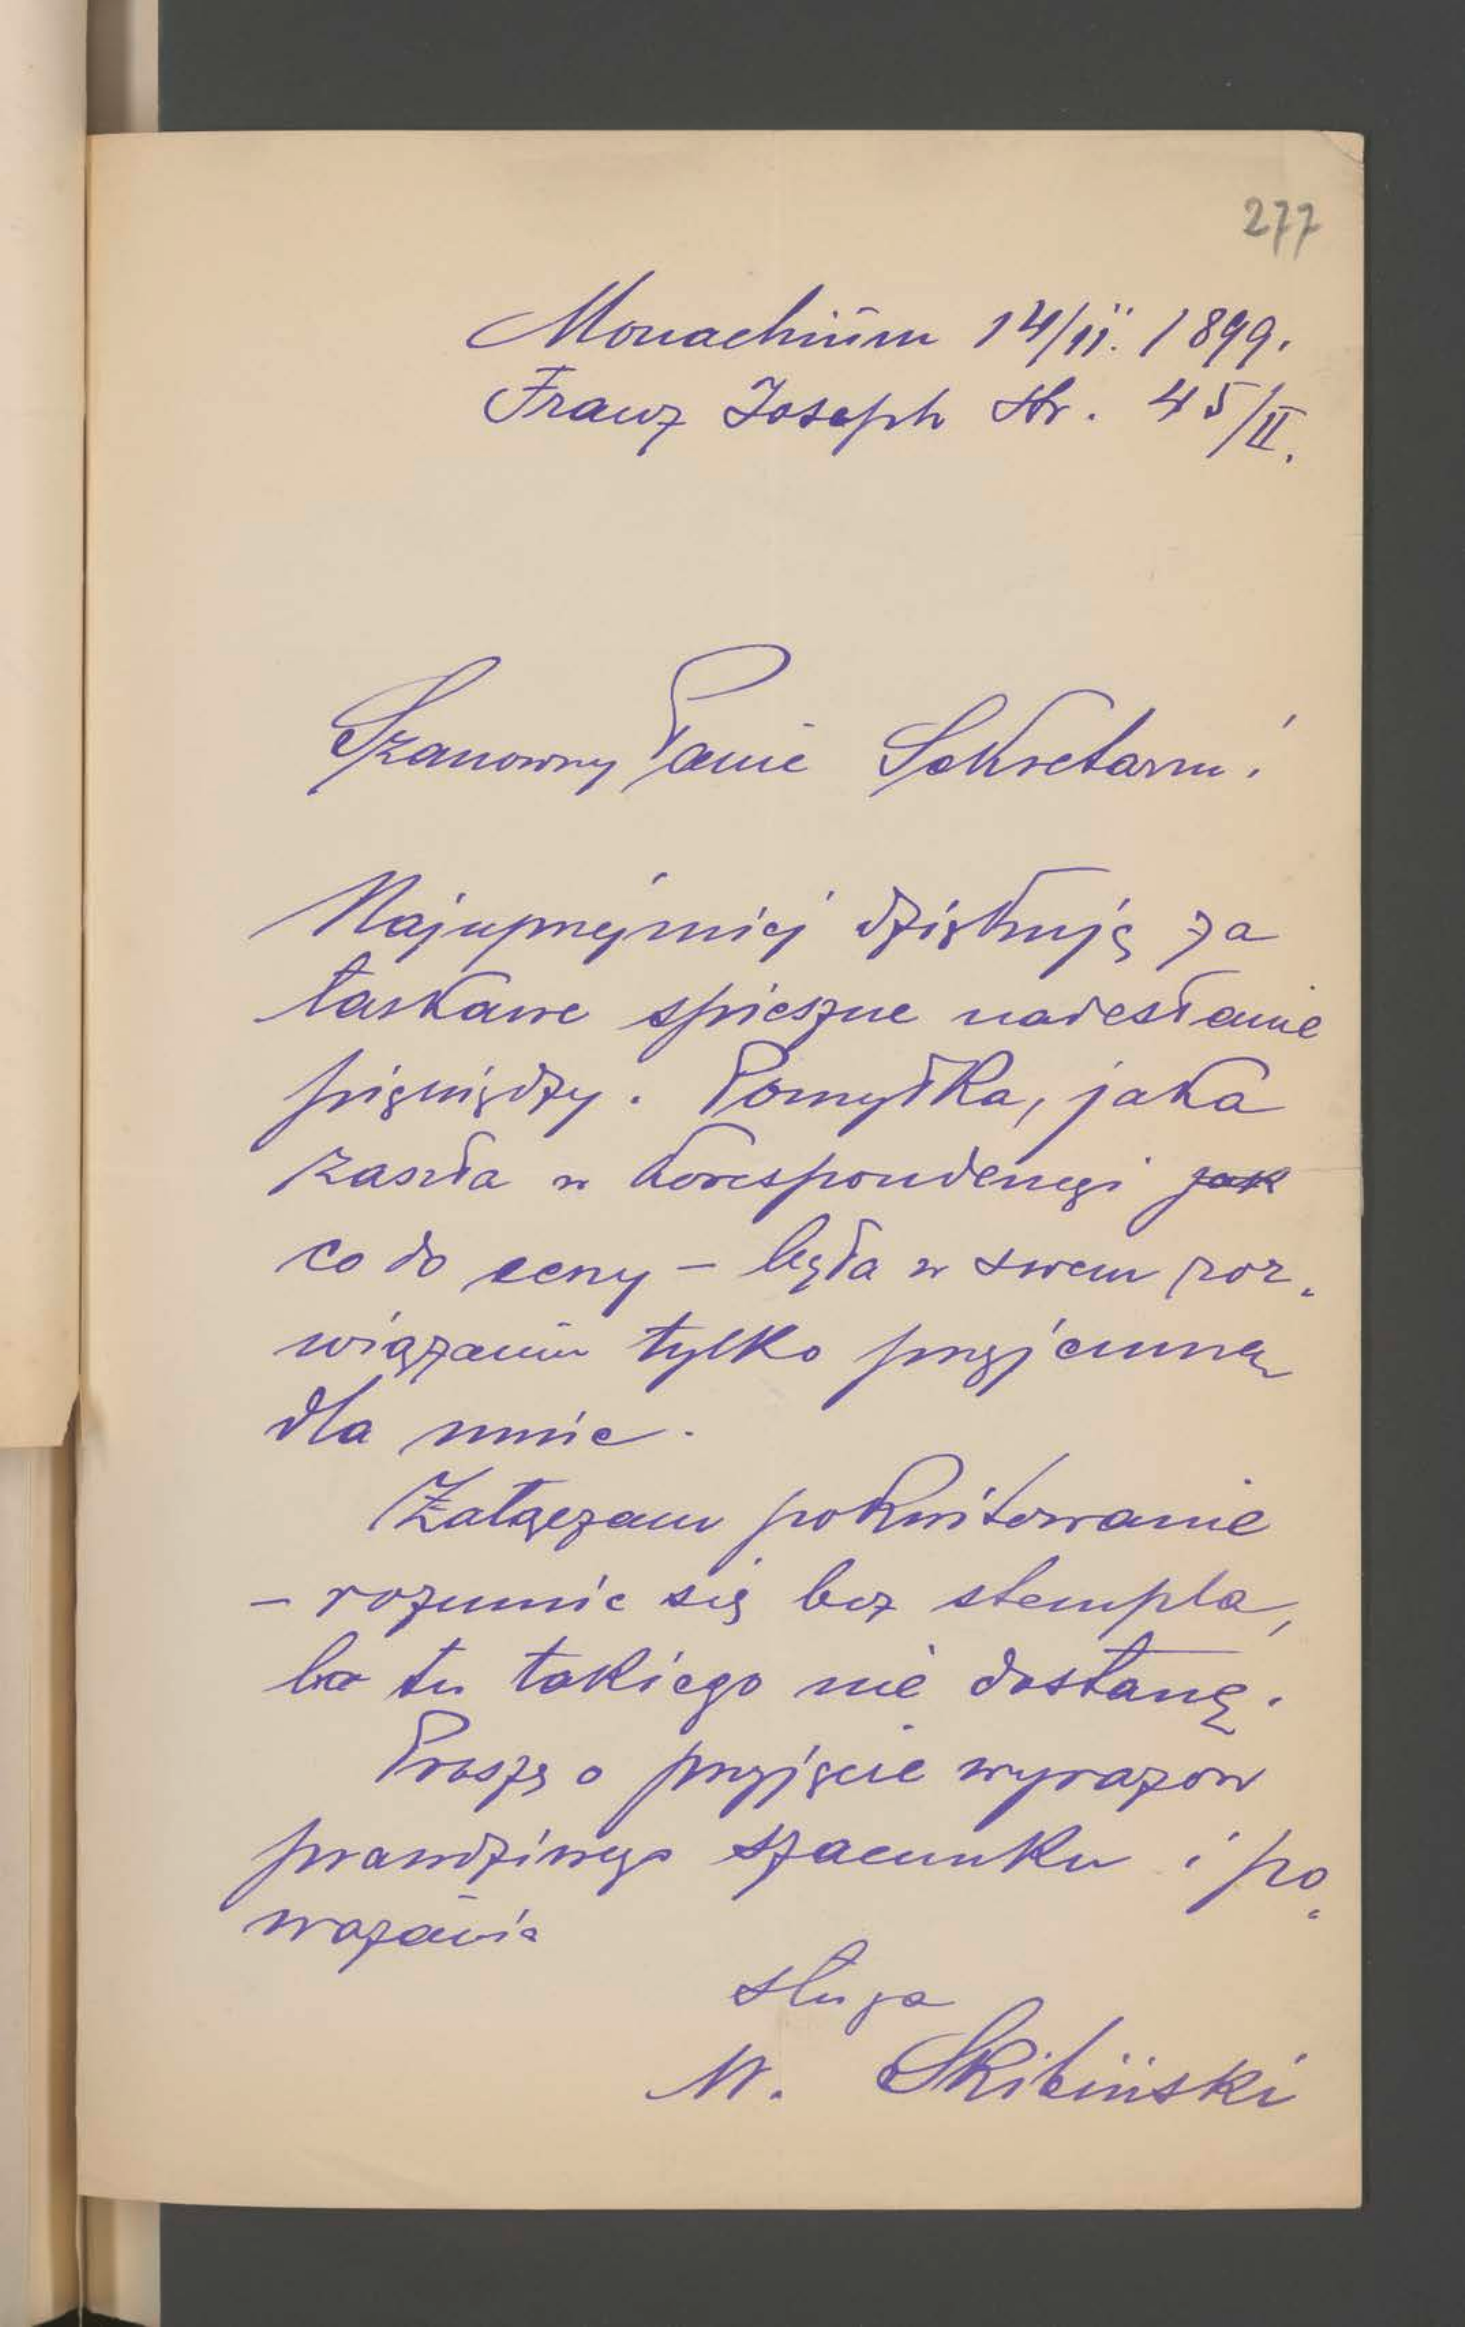 277
Monachium 14/II. 1899.
Franz Joseph Str. 45/II.
Szanowny Panie Sekretarzu!
Najuprzejmiej dziękuję za
łaskawe spieszne nadesłanie
pieniędzy. Pomyłka, jaka
zaszła w korespondencyi jak
co do ceny – była w swem roz„
wiązaniu tylko przyjemną
dla mnie.
Załączam pokwitowanie
– rozumie się bez stempla,
bo tu takiego nie dostanę.
Proszę o przyjęcie wyrazów
prawdziwego szacunku i po„
ważania
sługa
W. Skibiński